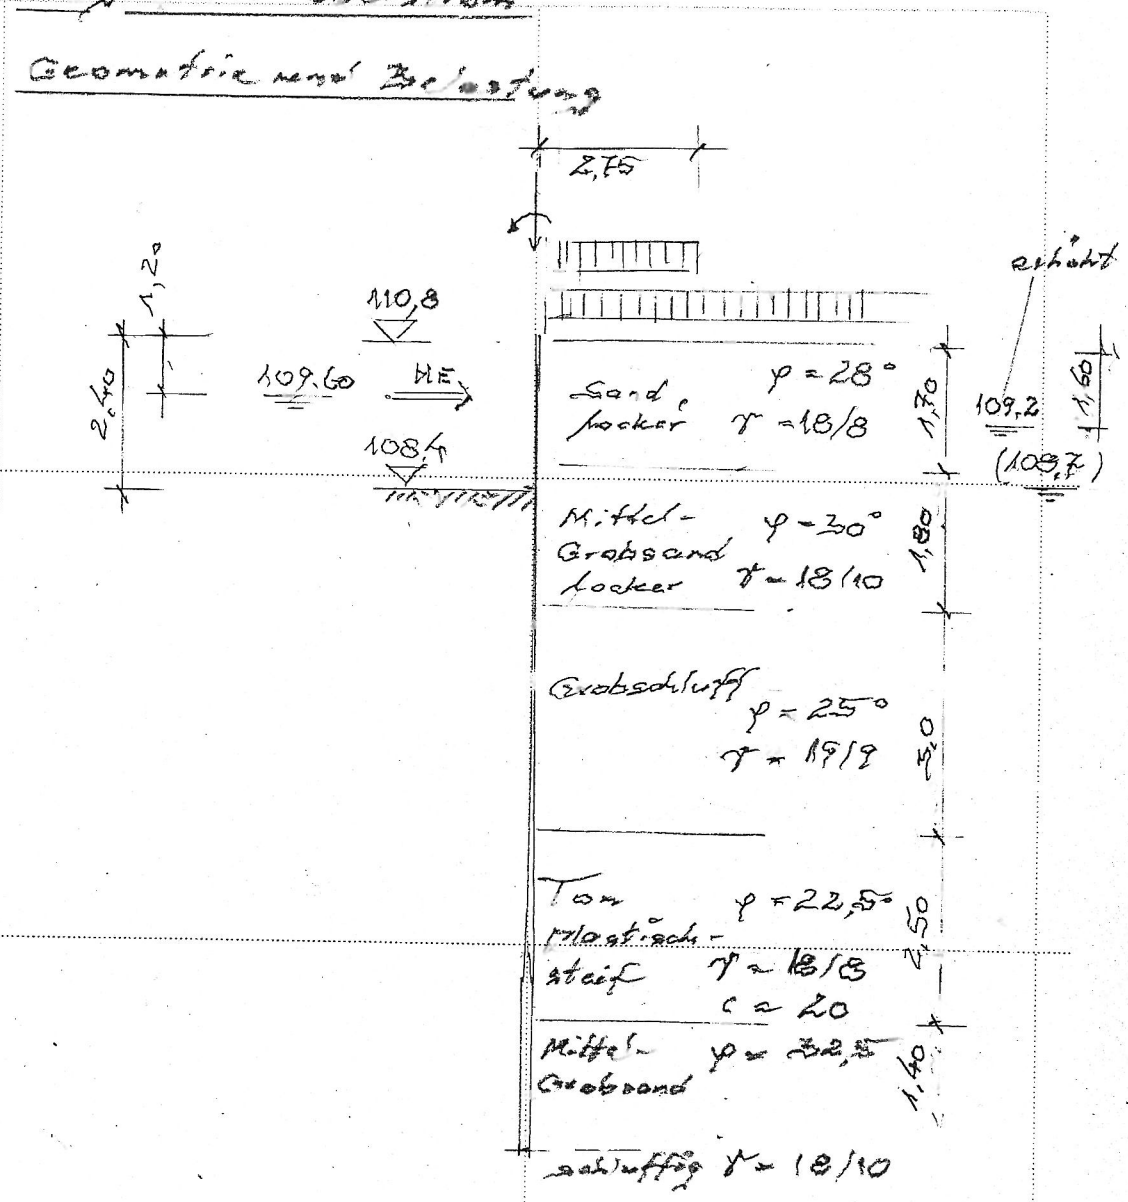 Geometrie und Belastung
2,75
erhöht
1,20
110,8
2.40
109.60
HE
Sand,
locker
φ = 28°
γ = 18/8
1,70
109,2
1,60
108,4
(108,7)
Mittel-
Grobsand
locker
φ = 30°
γ = 18/10
1,80
Grobschluff
φ = 25°
γ = 19/9
3,0
Ton
plastisch-
steif
φ = 22,5°
γ = 18/8
c = 20
2,50
Mittel-
Grobsand
φ = 32,5
1,40
schluffig γ = 18/10